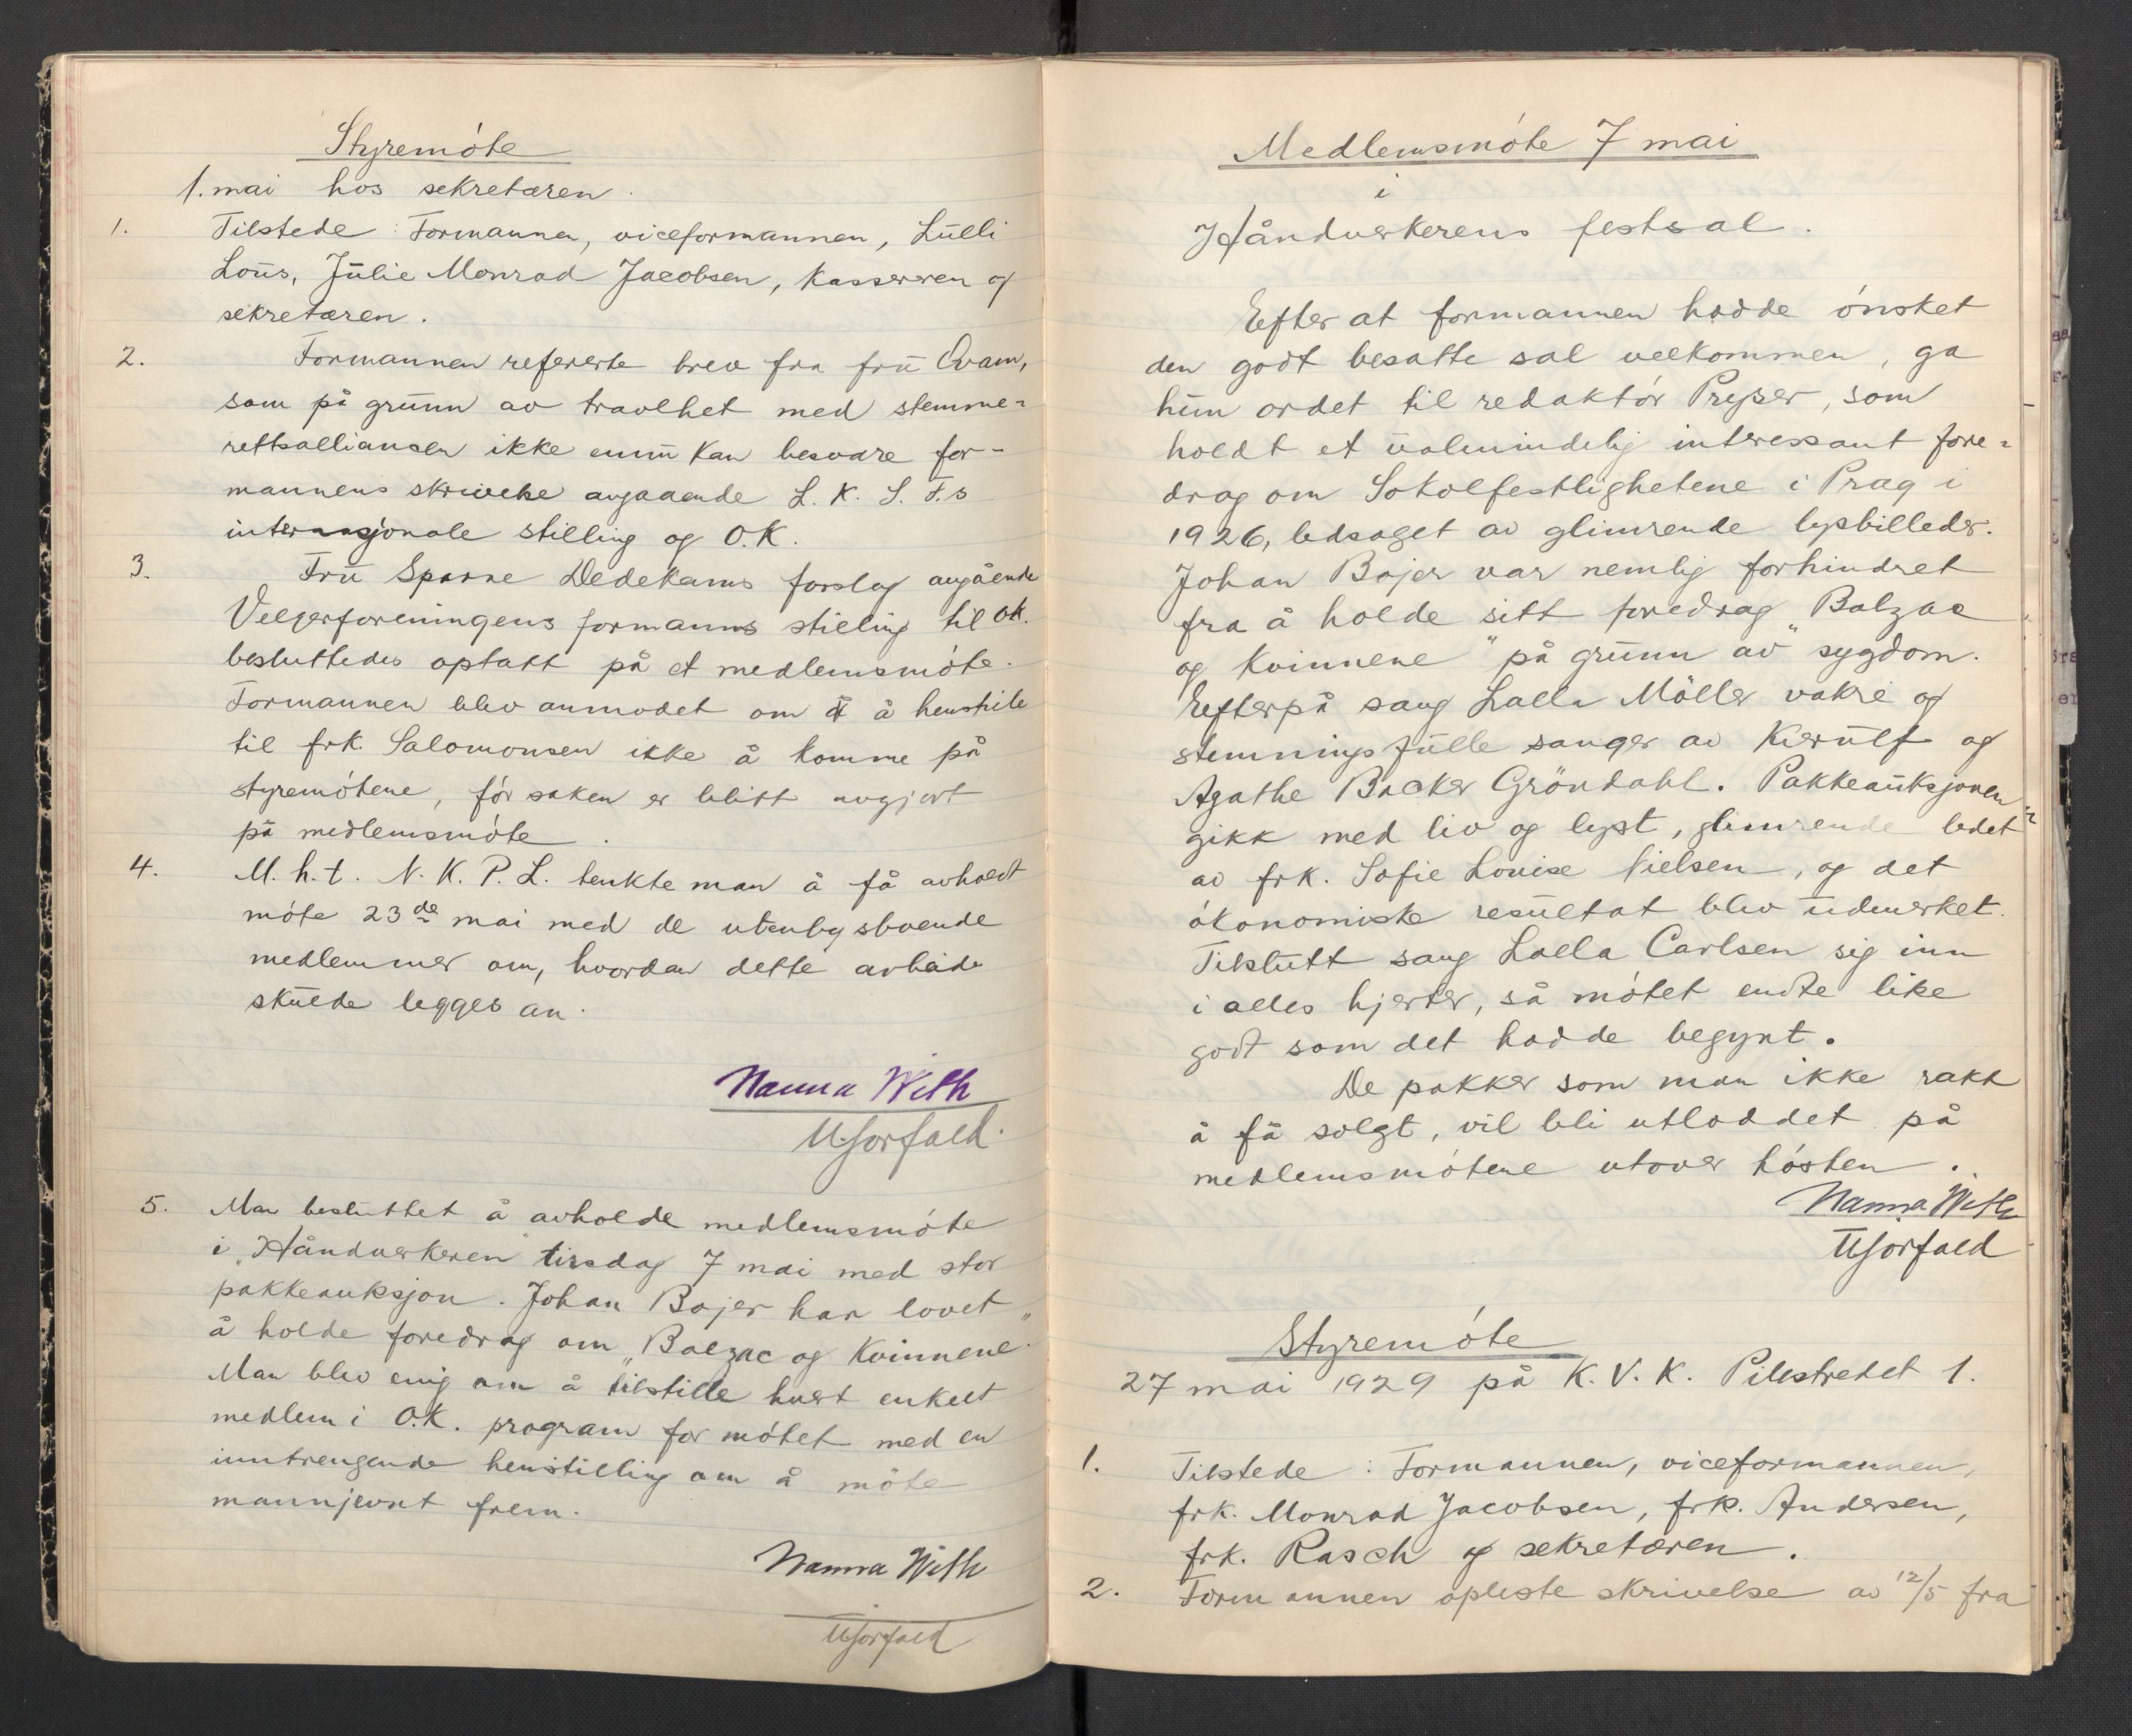 Styremóte
1. mai hos sekretæren.
1. Tilstede: Formannen, viceformannen, Lulli
Lous, Julie Monrad Jacobsen, Kassereren og
sekretæren.
2. Formannen refererte brev fra fru Qvam,
som på grunn av travlhet med stemme=
rettsalliansen ikke ennu kan besvare for-
mannens skrivelse angaaende L. K. S. F.s
internasjonale stilling og O.K.
3. Fru Sparre Dedekams forslag angående
Velgerforeningens formanns stilling til OK.
besluttedes optatt på et medlemsmóte.
Formannen blev anmodet om å henstille
til frk. Salomonsen ikke å komme på
styremótene, fór saken er blitt avgjort
på medlemsmóte.
4. M. h. t. N. K. P. L. tenkte man å få avholdt
móte 23de mai med de utenbys boende
medlemmer om, hvordan dette arbeide
skulde legges an.
Nanna With
5. Man besluttet å avholde medlemsmóte
i "Håndverkeren" tirsdag 7 mai med stor
pakkeauksjon. Johan Bojer har lovet
å holde foredrag om "Balzac og Kvinnene".
Man blev enig om å tilstille hvert enkelt
medlem i O.K. program for mótet med en
inntrengende henstilling om å móte
mannjevnt frem.
Nanna With
Medlemsmóte 7 mai
i
Håndverkerens festsal.
Efter at formannen hadde ónsket
den godt besatte sal velkommen, ga
hun ordet til redaktór Preyser, som
holdt et ualmindelig interessant fore=
drag om Sokolfestlighetene i Prag i
1926, ledsaget av glimrende lysbilleder.
Johan Bojer var nemlig forhindret
fra å holde sitt foredrag "Balzac
og Kvinnene" på grunn av sygdom.
Efterpå sang Lalla Möller vakre og
stemningsfulle sanger av Kierulf og
Agathe Backer Gröndahl. Pakkeauksjonen
gikk med liv og lyst, glimrende ledet
av frk. Sofie Louise Nielsen, og det
ókonomiske resultat blev udmerket.
Tilslutt sang Lalla Carlsen sig inn
i alles hjerter, så mótet endte like
godt som det hadde begynt.
De pakker som man ikke rakk
å få solgt, vil bli utloddet på
medlemsmótene utover hósten.
Nanna With
Styremóte
27 mai 1929 på K. V. K. Pilestredet 1.
1. Tilstede: Formannen, viceformannen,
frk. Monrad Jacobsen, frk. Andersen,
frk. Rasch og sekretæren.
2. Formannen opleste skrivelse av 12/5 fra